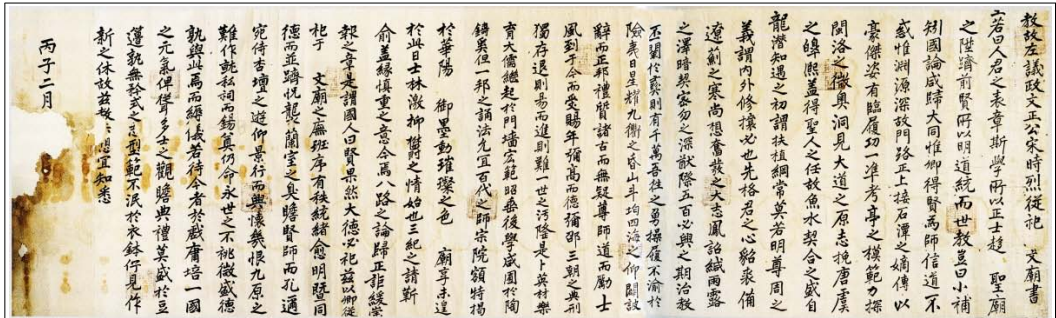 教故左議政文正公宋時烈從祀 文廟書
王若曰人君之表章斯學所以正士趍 聖廟
之陞躋前賢所以明道統而世教豈曰小補
矧國論咸歸大同惟卿得賢爲師信道不
惑惟淵源深故門路正上接石潭之嫡傳以
豪傑姿有臨履功一准考亭之模範力探
閩洛之微奧洞見大道之原志挽唐虞
之皡熙盖得聖人之任故魚水契合之盛自
龍潛知遇之初謂扶植綱常莫若明尊周之
義謂內外修攘必也先格君之心貂裘備
遼薊之寒尚想奮發之大志鳳詔緘雨露
之澤暗契密勿之深猷際五百必興之期治教
丕闡於 則有千萬吾往之勇操履不渝於
險夷日星耀九衢之昏山斗均四海之仰闢詖
辭而正邦禮質諸古而無疑尊師道而勵士
風到于今而受賜年彌高而德彌卲三朝之典刑
獨存退則易而進則難一世之污隆是卜英材樂
育大儒繼起於門墻宏範昭垂後學咸囿於陶
鑄奚但一邦之誦法允宜百代之師宗院額特揭
於華陽 御墨動璀璨之色 廟享未遑
於此日士林激抑鬱之情始也三紀之請靳
兪盖緣愼重之意今焉八路之論歸正詎緩崇
報之章是謂國人曰賢果然大德必祀玆以卿從
祀于 文廟之廡班序有秩統緖愈明曁同
德而並躋怳襲蘭室之臭瞻賢師而孔邇
宛侍杏壇之遊仰景行而興懷幾恨九原之
難作就 祠而錫 仍命永世之不祧微盛德
孰與此焉而縟儀若待今者於戲庸培一國
之元氣俾聳多士之觀瞻典禮莫盛於豆
籩孰無矜式之 型範不泯於衣鉢佇見作
新之休故玆教示想宜知悉
丙子二月